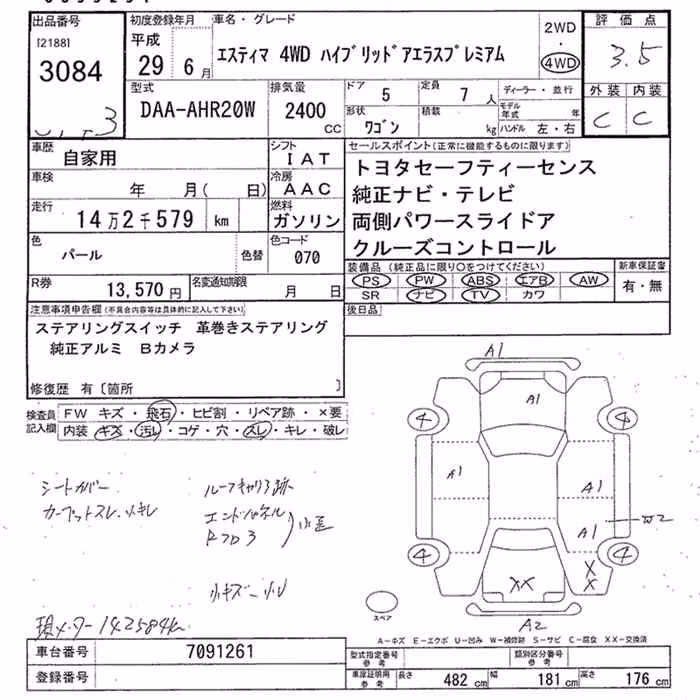 出品番号
[2188]
3084
3
初度登録年月
平成
29年 6月
車名・グレード
エスティマ 4WD ハイブリッドアエラスプレミアム
2WD
・
4WD
評価点
3.5
外装 内装
C C
型式
DAA-AHR20W
排気量
2400
CC
ドア
5
定員
7人
形状
ワゴン
積載
kg
ディーラー・並行
モデル年式 年
ハンドル 左・右
車歴
自家用
シフト
IAT
車検
年 月( 日)
冷房
AAC
走行
14万2千579 km
燃料
ガソリン
色
パール
色替
色コード
070
R券
13,570円
名変通知期限
月 日
セールスポイント(正常に機能するものに限ります)
トヨタセーフティーセンス
純正ナビ・テレビ
両側パワースライドア
クルーズコントロール
装備品(純正品に限り○をつけてください)
PS PW ABS エアB AW
SR ナビ TV カワ
新車保証書
有・無
後日品
注意事項申告欄(不具合内容等は具体的に記入して下さい)
ステアリングスイッチ 革巻きステアリング
純正アルミ Bカメラ
修復歴 有〔箇所 〕
検査員記入欄
FW キズ・飛石・ヒビ割・リペア跡・×要
内装 キズ・汚レ・コゲ・穴・スレ・キレ・破レ
シートカバー
カーペットスレ、
ルーフキャリア跡
エンドパネル
RフロP
小キズ
現メーター142584km
A1
A1
4
4
A1
A1
A1
W2
4
4
X
X
XX
スペア
A2
A-キズ E-エクボ U-凹み W-補修跡 S-サビ C-腐食 XX-交換済
車台番号
7091261
登録番号
型式指定番号
参考
類別区分番号
参考
車庫証明用
参考
長さ 482cm 幅 181cm 高さ 176cm